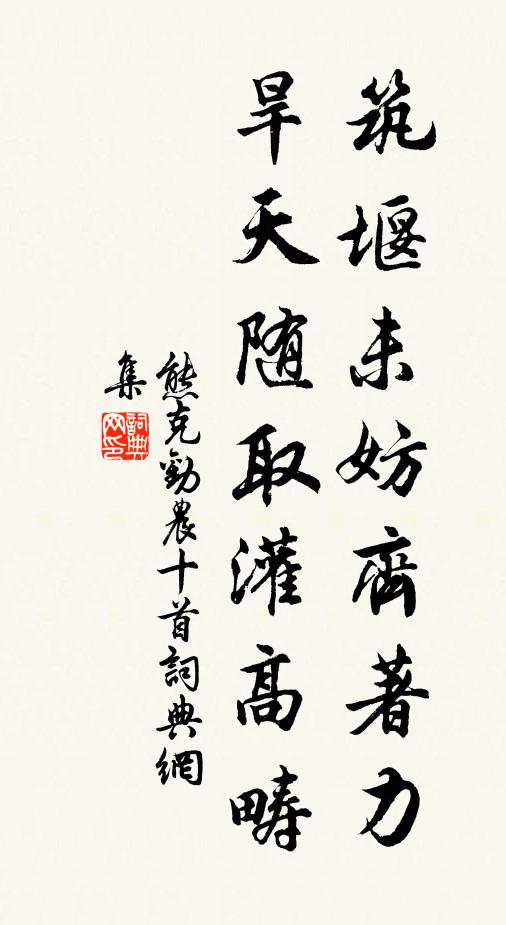 筑堰未妨齊著力
旱天随取灌高畴
熊克勸農十首詞典網
集
詞典
网印